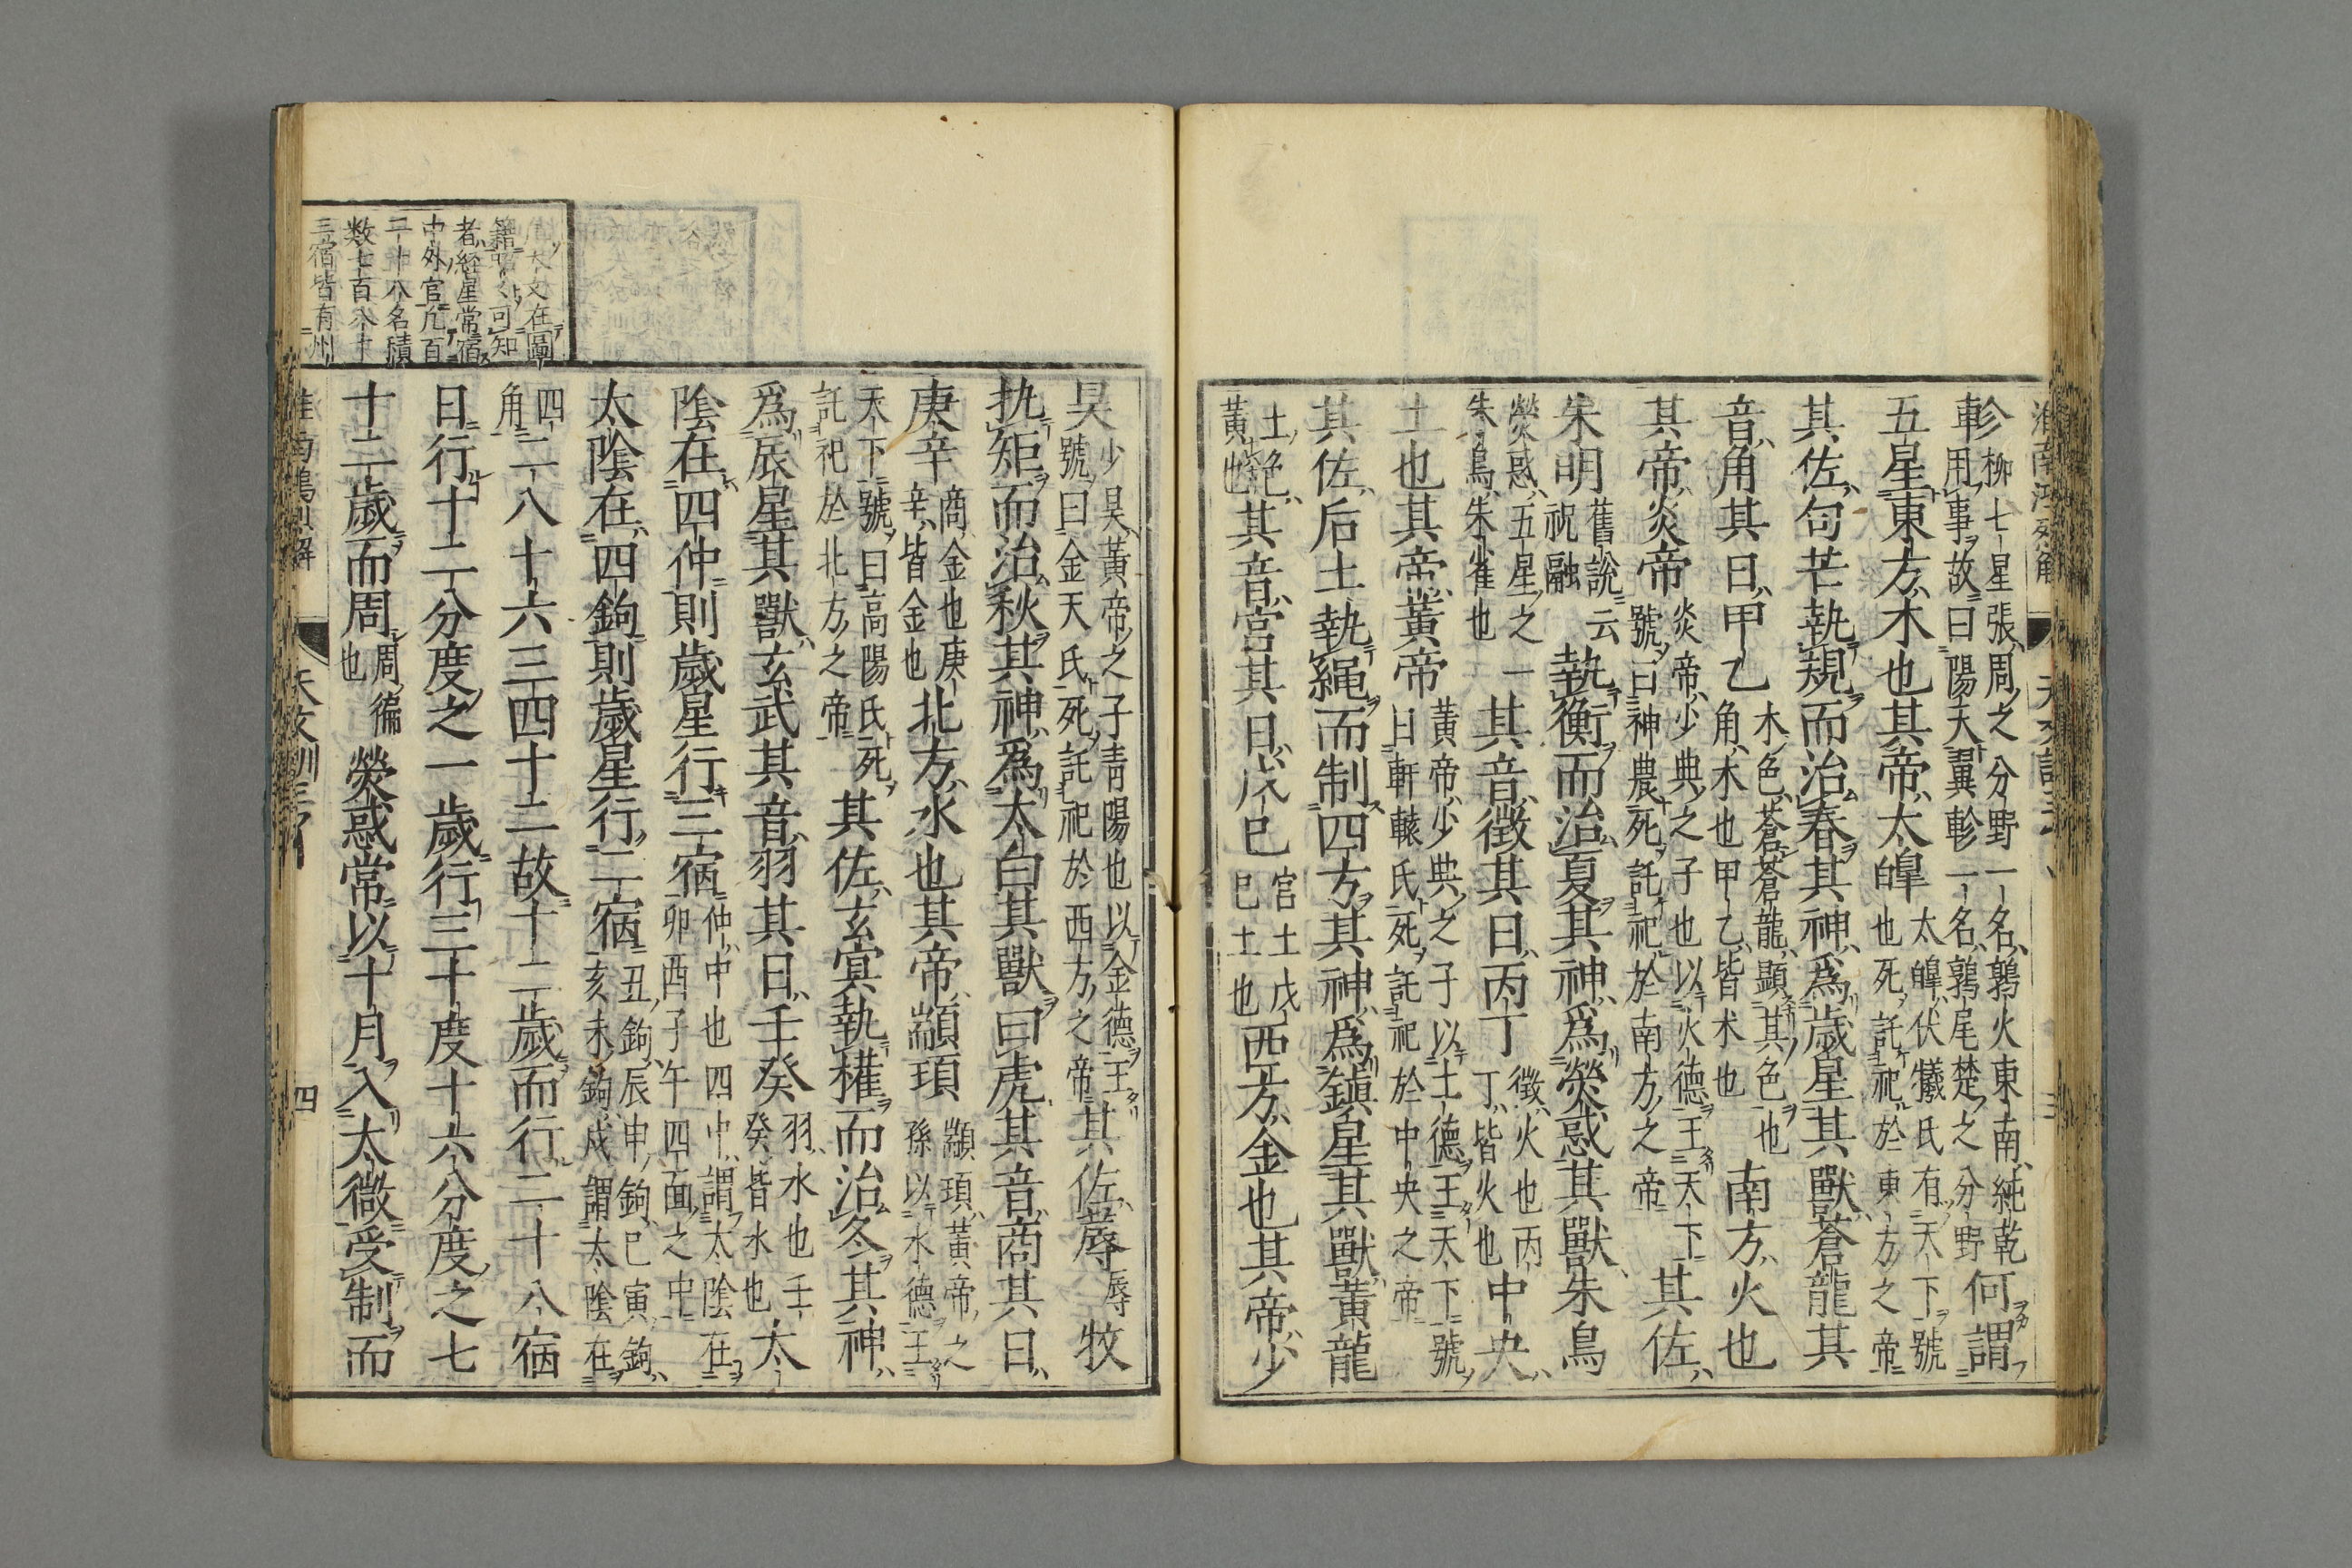 軫柳七星張周之分野一名鶉火東南純乾
車用事故曰陽天翼軫一名鶉尾楚之分野何謂
五星東方木也其帝太皥太皥伏犧氏有天下號也死託祀於東方之帝
其佐句芒執規而治春其神爲歲星其獸蒼龍其
音角其日甲乙木色蒼蒼龍顯其色也角木也甲乙皆木也南方火也
其帝炎帝炎帝少典之子也以火德王天下號曰神農死託祀於南方之帝其佐
朱明舊說云祝融執衡而治夏其神爲熒惑其獸朱鳥
熒惑五星之一朱鳥朱雀也其音徵其日丙丁徵火也丙丁皆火也中央
土也其帝黃帝黃帝少典之子以土德王天下號曰軒轅氏死託祀於中央之帝
其佐后土執繩而制四方其神爲鎮星其獸黃龍
土色黃也其音宮其日戊己宮土戊己土也西方金也其帝少
昊少昊黃帝之子青陽也以金德王號曰金天氏死託祀於西方之帝其佐蓐蓐牧
执矩而治秋其神爲太白其獸曰虎其音商其日
庚辛商金也庚辛皆金也北方水也其帝顓頊顓頊黃帝之孫以水德王
天下號曰高陽氏死託祀於北方之帝其佐玄冥執權而治冬其神
爲辰星其獸玄武其音羽其日壬癸羽水也壬癸皆水也太
陰在四仲則歲星行三宿仲中也四中謂太陰在卯酉子午四面之中
太陰在四鉤則歲星行二宿丑鉤辰申鉤巳寅鉤亥未鉤戍謂太陰在
四角二八十六三四十二故十二歲而行二十八宿
日行十二分度之一歲行三十度十六分度之七
十二歲而周周徧也熒惑常以十月入太微受制而
天文在圖
籍昭々可知
者經星常宿
中外官凡百
二十八名積
数七百八十
三宿皆有州
天文訓三
四